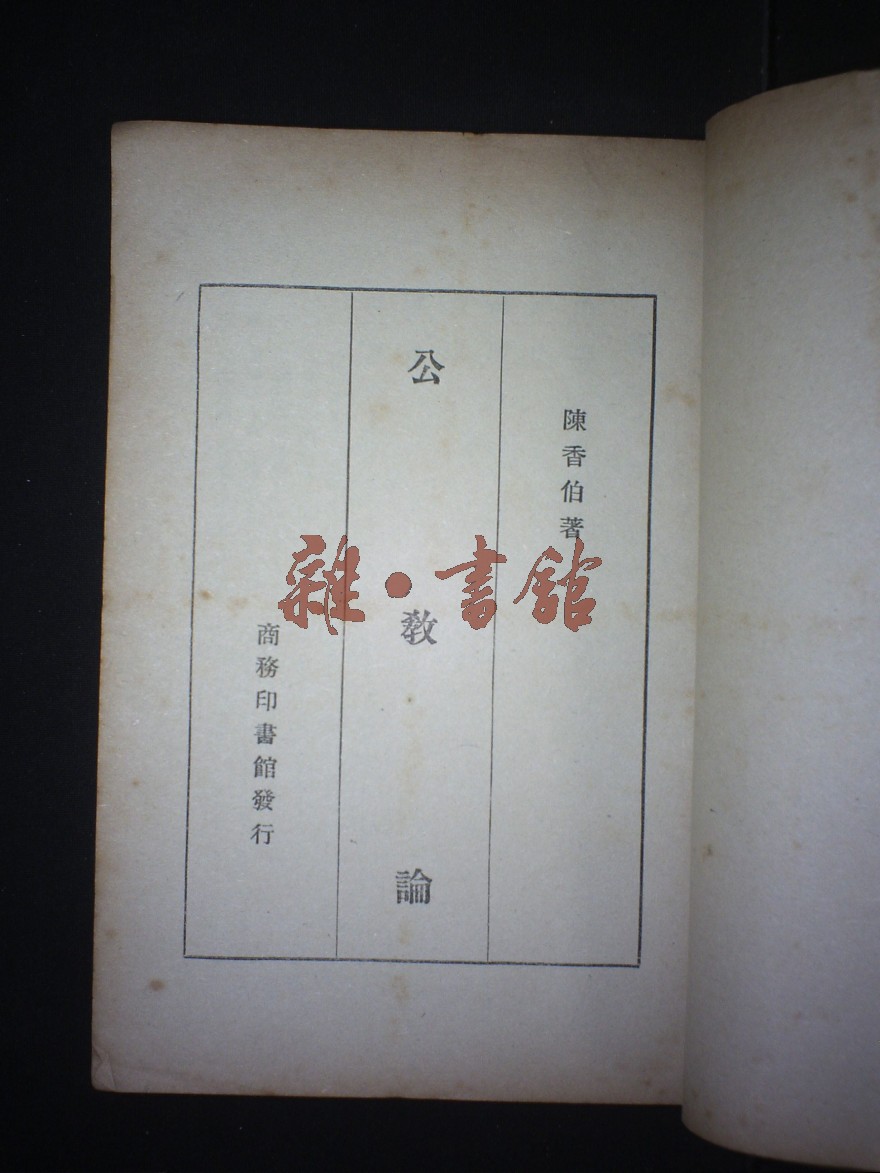 陳香伯著
公敎論
商務印書館發行
雜·書館